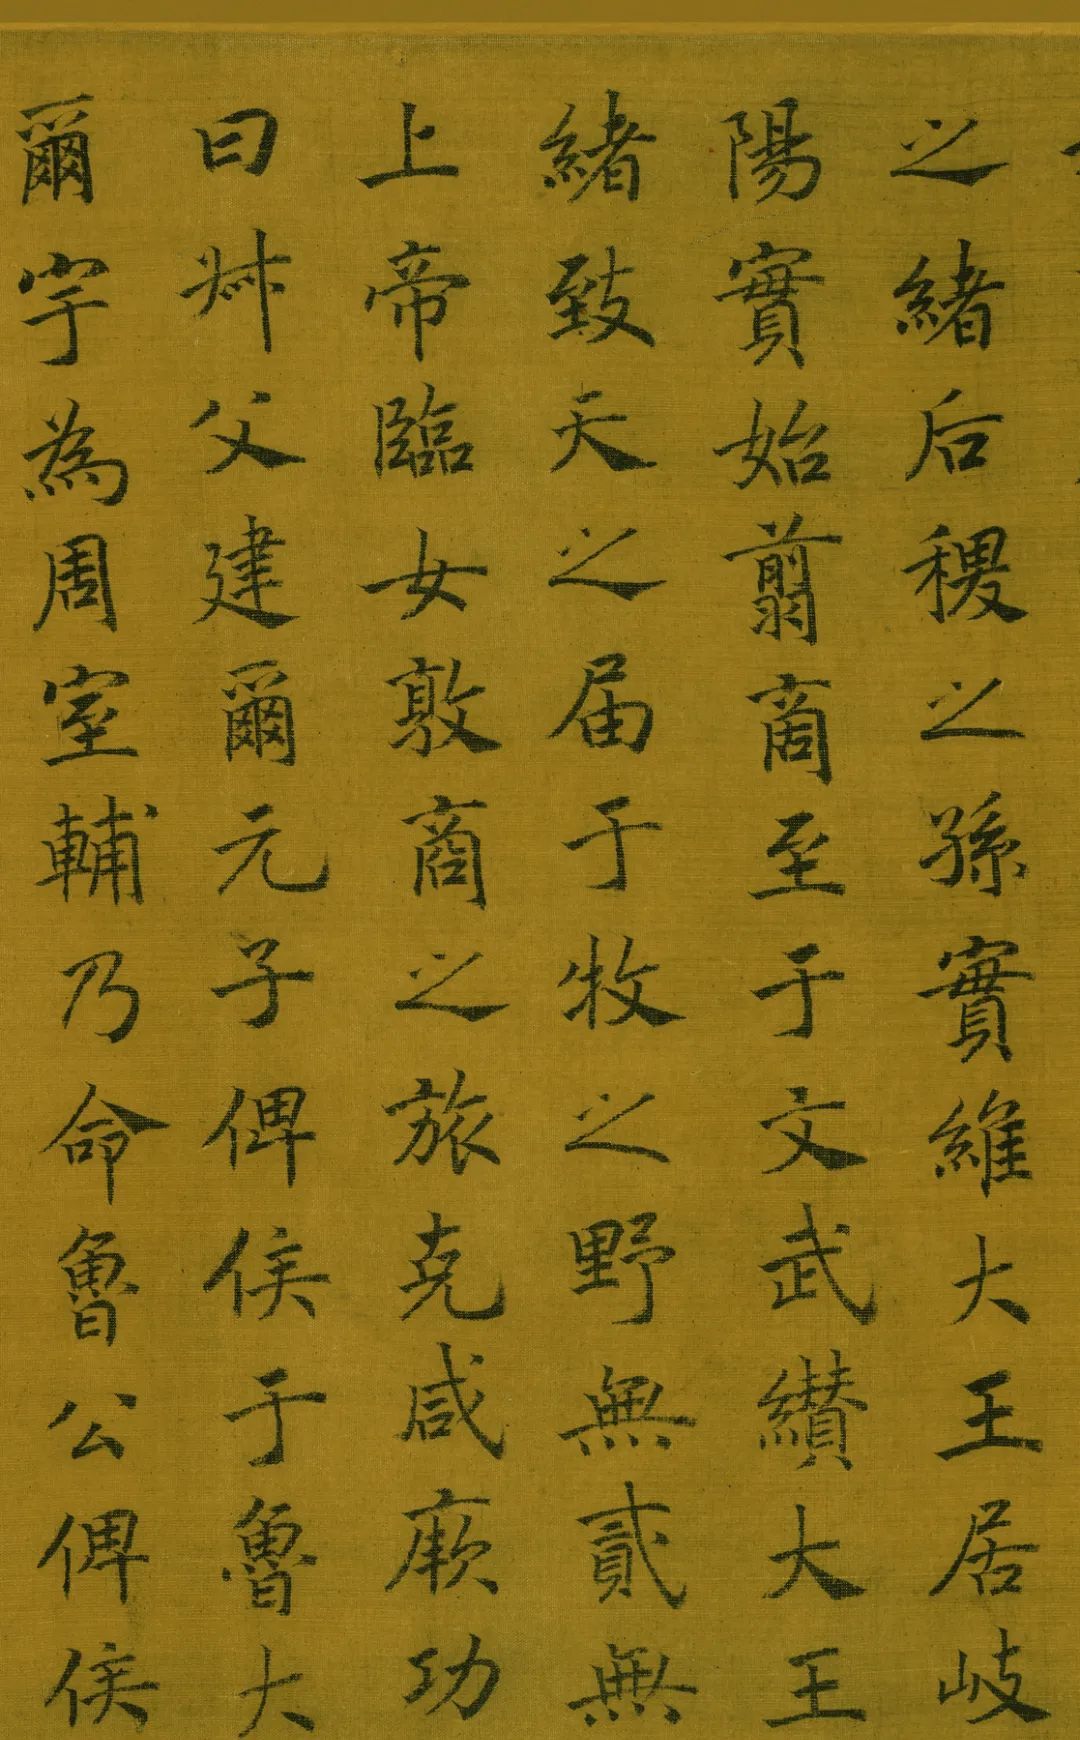 之緒后稷之孫實維大王居岐
陽實始翦商至于文武纘大王
緒致天之届于牧之野無貳無
上帝臨女敦商之旅克咸厥功
曰叔父建爾元子俾侯于魯大
爾宇為周室輔乃命魯公俾侯